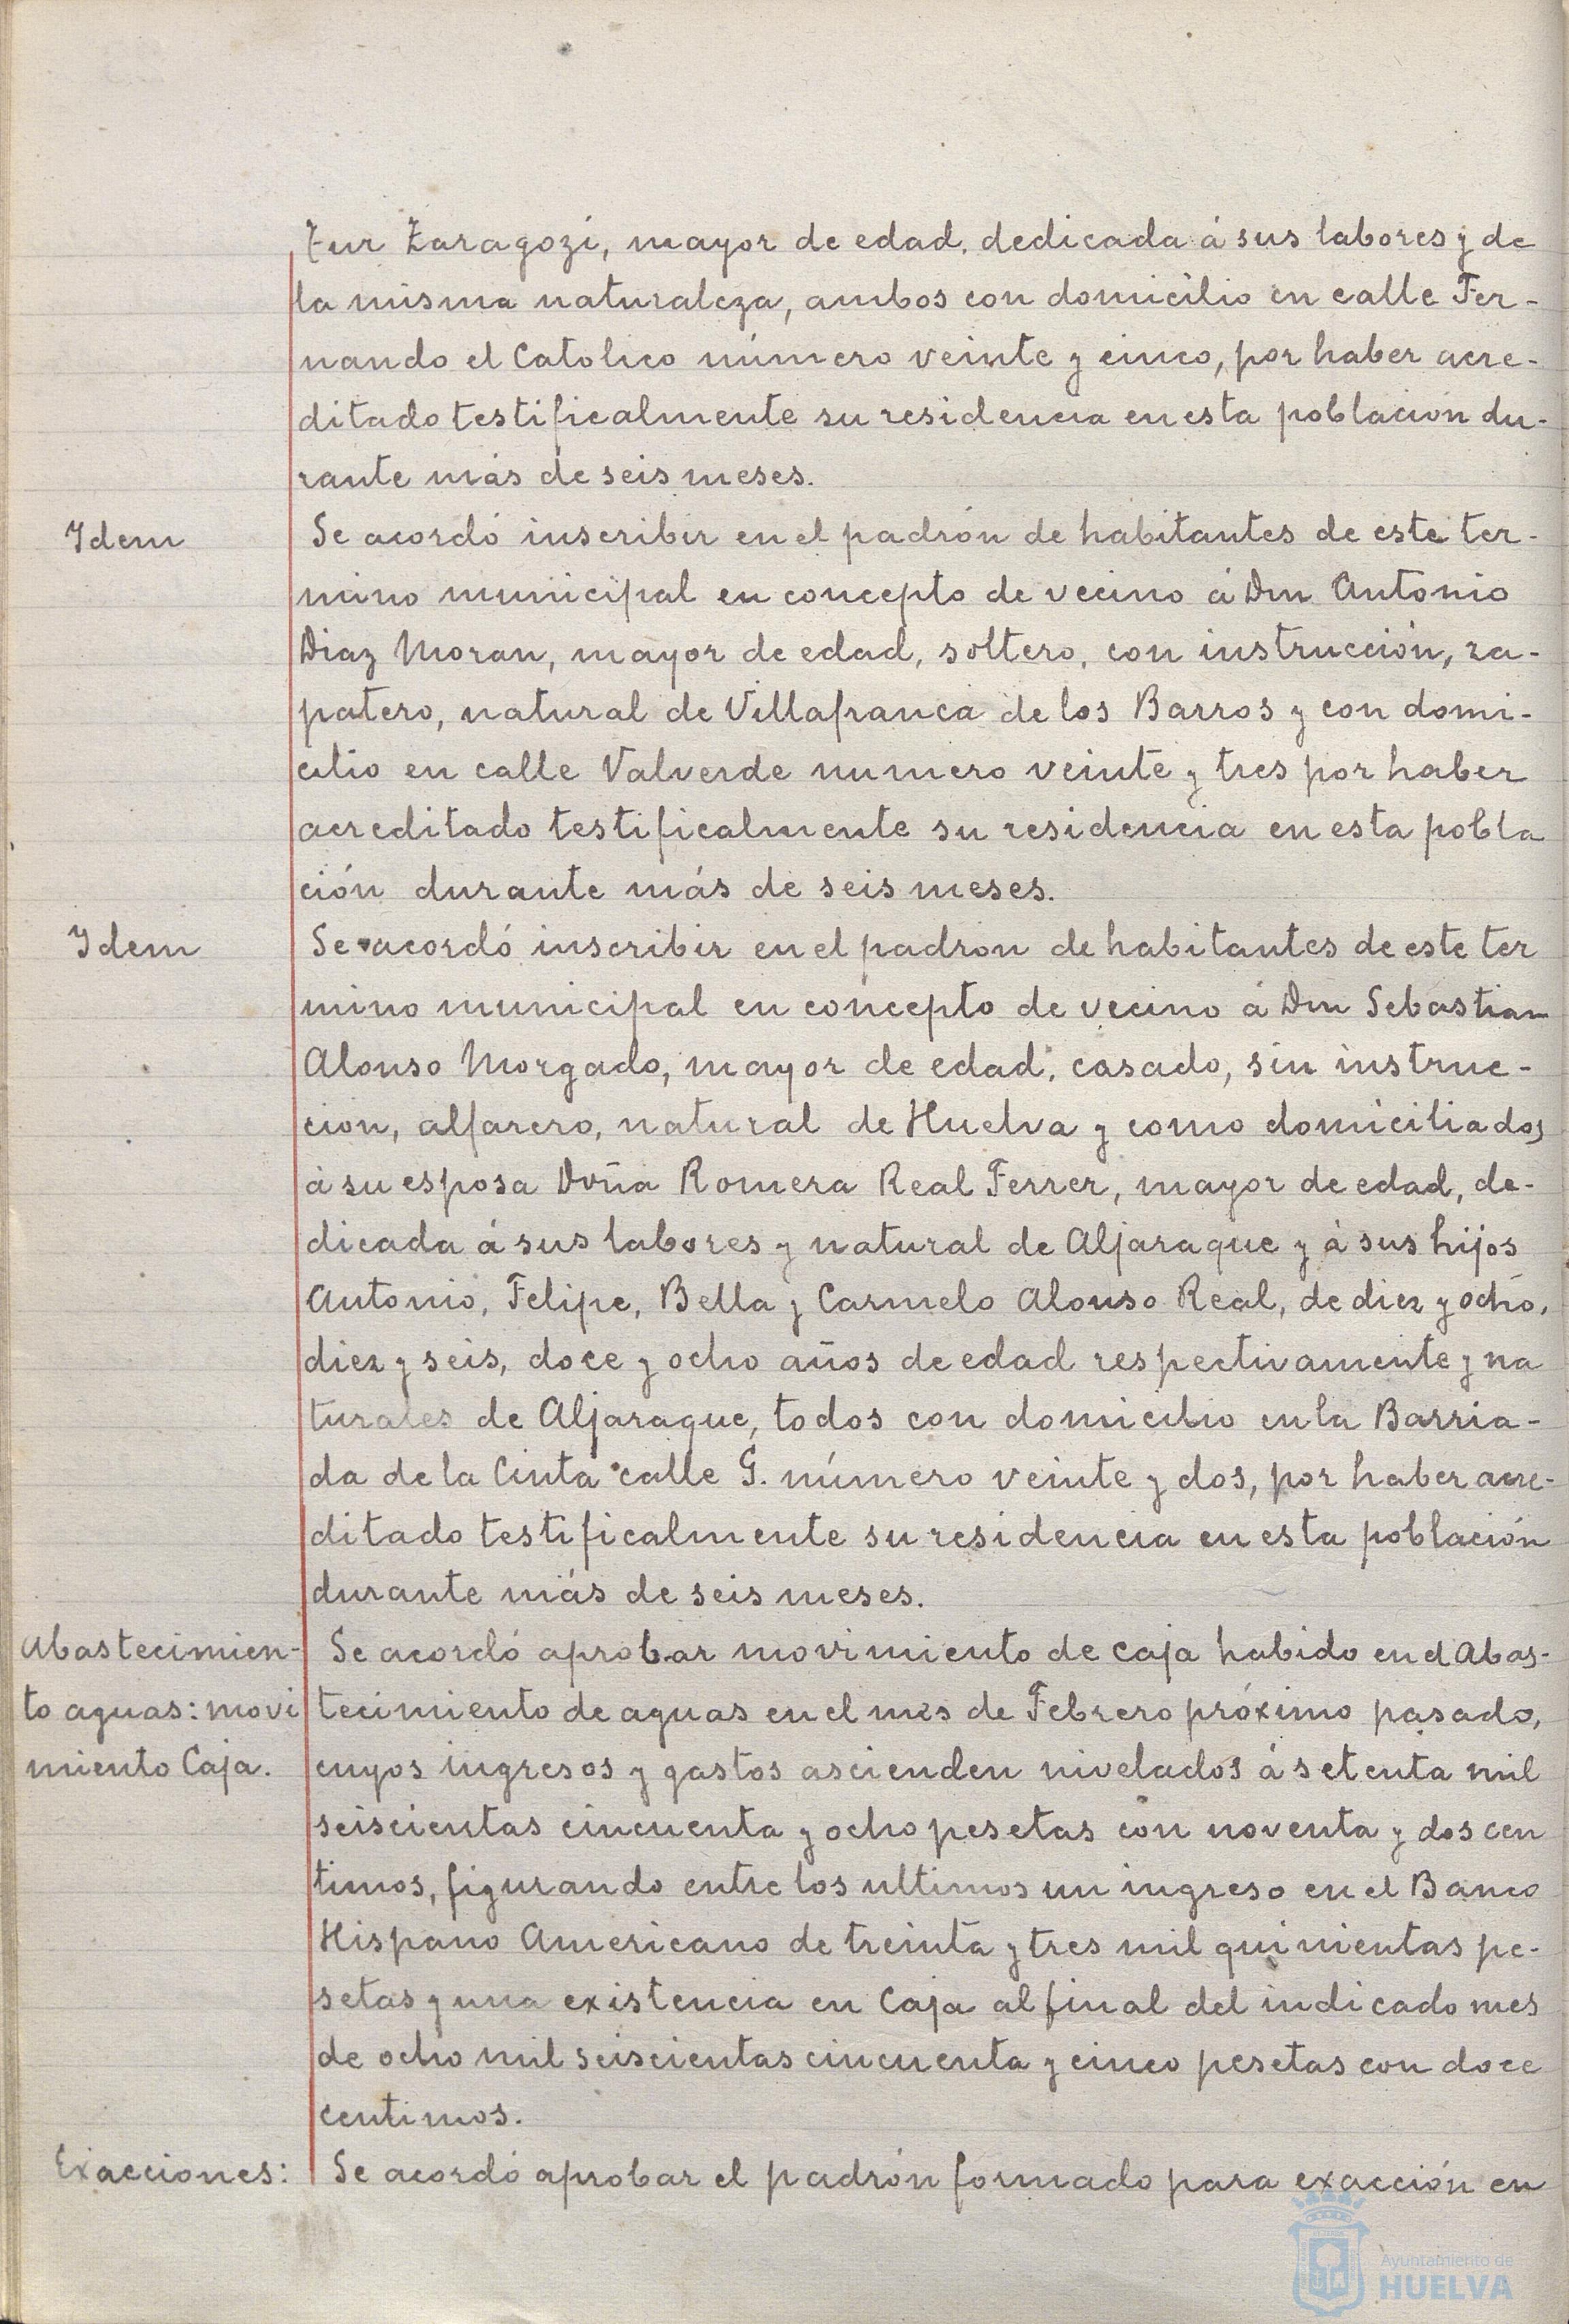 Zur Zaragozí, mayor de edad, dedicada á sus labores y de
la misma naturaleza, ambos con domicilio en calle Fer-
nando el Catolico número veinte y cinco, por haber acre-
ditado testificalmente su residencia en esta población du-
rante más de seis meses.
Idem
Se acordó inscribir en el padrón de habitantes de este ter-
mino municipal en concepto de vecino á Don Antonio
Diaz Moran, mayor de edad, soltero, con instrucción, za-
patero, natural de Villafranca de los Barros y con domi-
cilio en calle Valverde numero veinte y tres por haber
acreditado testificalmente su residencia en esta pobla
ción durante más de seis meses.
Idem
Se acordó inscribir en el padron de habitantes de este ter
mino municipal en concepto de vecino á Don Sebastian
Alonso Morgado, mayor de edad, casado, sin instruc-
cion, alfarero, natural de Huelva y como domiciliados
á su esposa Doña Romera Real Ferrer, mayor de edad, de-
dicada á sus labores y natural de Aljaraque y á sus hijos
Antonio, Felipe, Bella y Carmelo Alonso Real, de diez y ocho,
diez y seis, doce y ocho años de edad respectivamente y na
turales de Aljaraque, todos con domicilio en la Barria-
da de la Cinta calle G. número veinte y dos, por haber acre-
ditado testificalmente su residencia en esta población
durante más de seis meses.
Abastecimien-
to aguas: movi
miento Caja.
Se acordó aprobar movimiento de caja habido en el Abas-
tecimiento de aguas en el mes de Febrero próximo pasado,
cuyos ingresos y gastos ascienden nivelados á setenta mil
seiscientas cincuenta y ocho pesetas con noventa y dos cen
timos, figurando entre los ultimos un ingreso en el Banco
Hispano Americano de treinta y tres mil quinientas pe-
setas y una existencia en Caja al final del indicado mes
de ocho mil seiscientas cincuenta y cinco pesetas con doce
centimos.
Exacciones:
Se acordó aprobar el padrón formado para exacción en
Ayuntamiento de
HUELVA